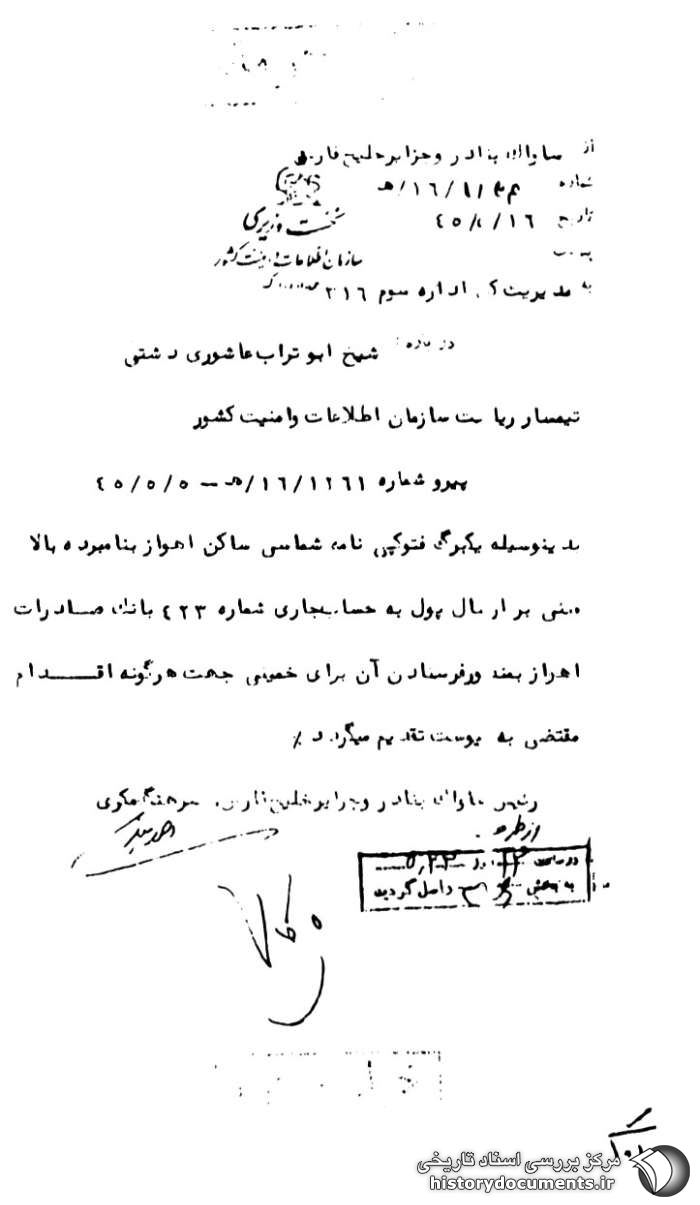 از ساواک بنادر و جزایر خلیج فارس
شماره /۱۶/ه
تاریخ ۴۵/
نخست وزیری
سازمان اطلاعات و امنیت کشور
به مدیریت کل اداره سوم ۳۱۶
درباره : شیخ ابوتراب عاشوری دشتی
تیمسار ریاست سازمان اطلاعات وامنیت کشور
پیرو شماره ۱۲۶۱/۱۶/ه – ۴۵/۵/۵
بدینوسیله یکبرگ فتوکپی نامه شماسی ساکن اهواز بنامبرده بالا
مبنی بر ارسال پول به حسابجاری شماره ۴۲۳ بانک صادرات
اهواز بمنظورفرستادن آن برای خمینی جهت هرگونه اقـــدام
مقتضی به پیوست تقدیم میگردد ٪
رئیس ساواک بنادر وجزایرخلیج فارس. سرهنگ
از طرف
در ساعت
به بخش واصل گردید
مرکز بررسی اسناد تاریخی
historydocuments.ir